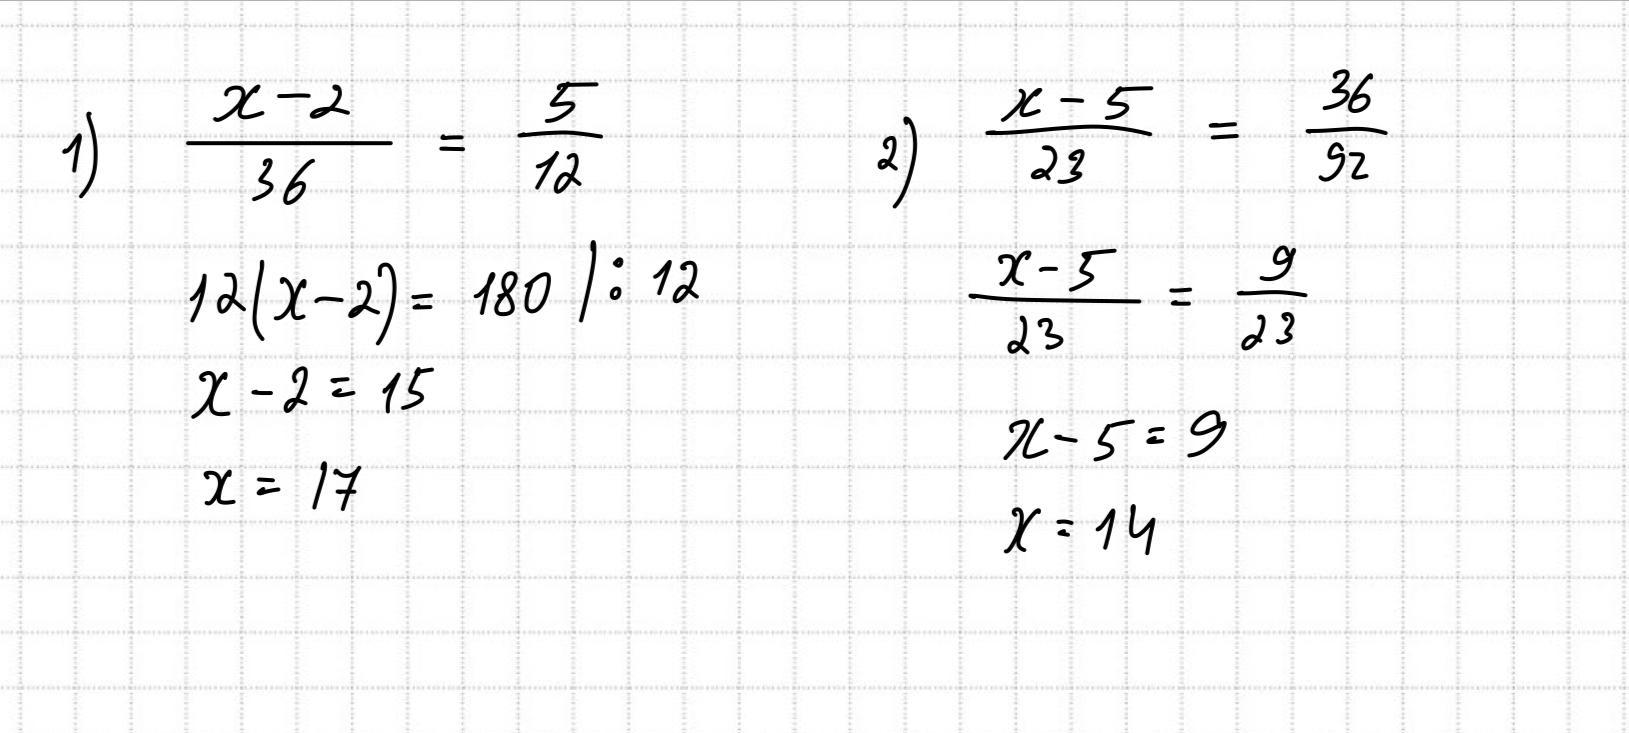 1) x-2/36 = 5/12
12(x-2) = 180 | : 12
x - 2 = 15
x = 17
2) x-5/23 = 36/92
x-5/23 = 9/23
x - 5 = 9
x = 14